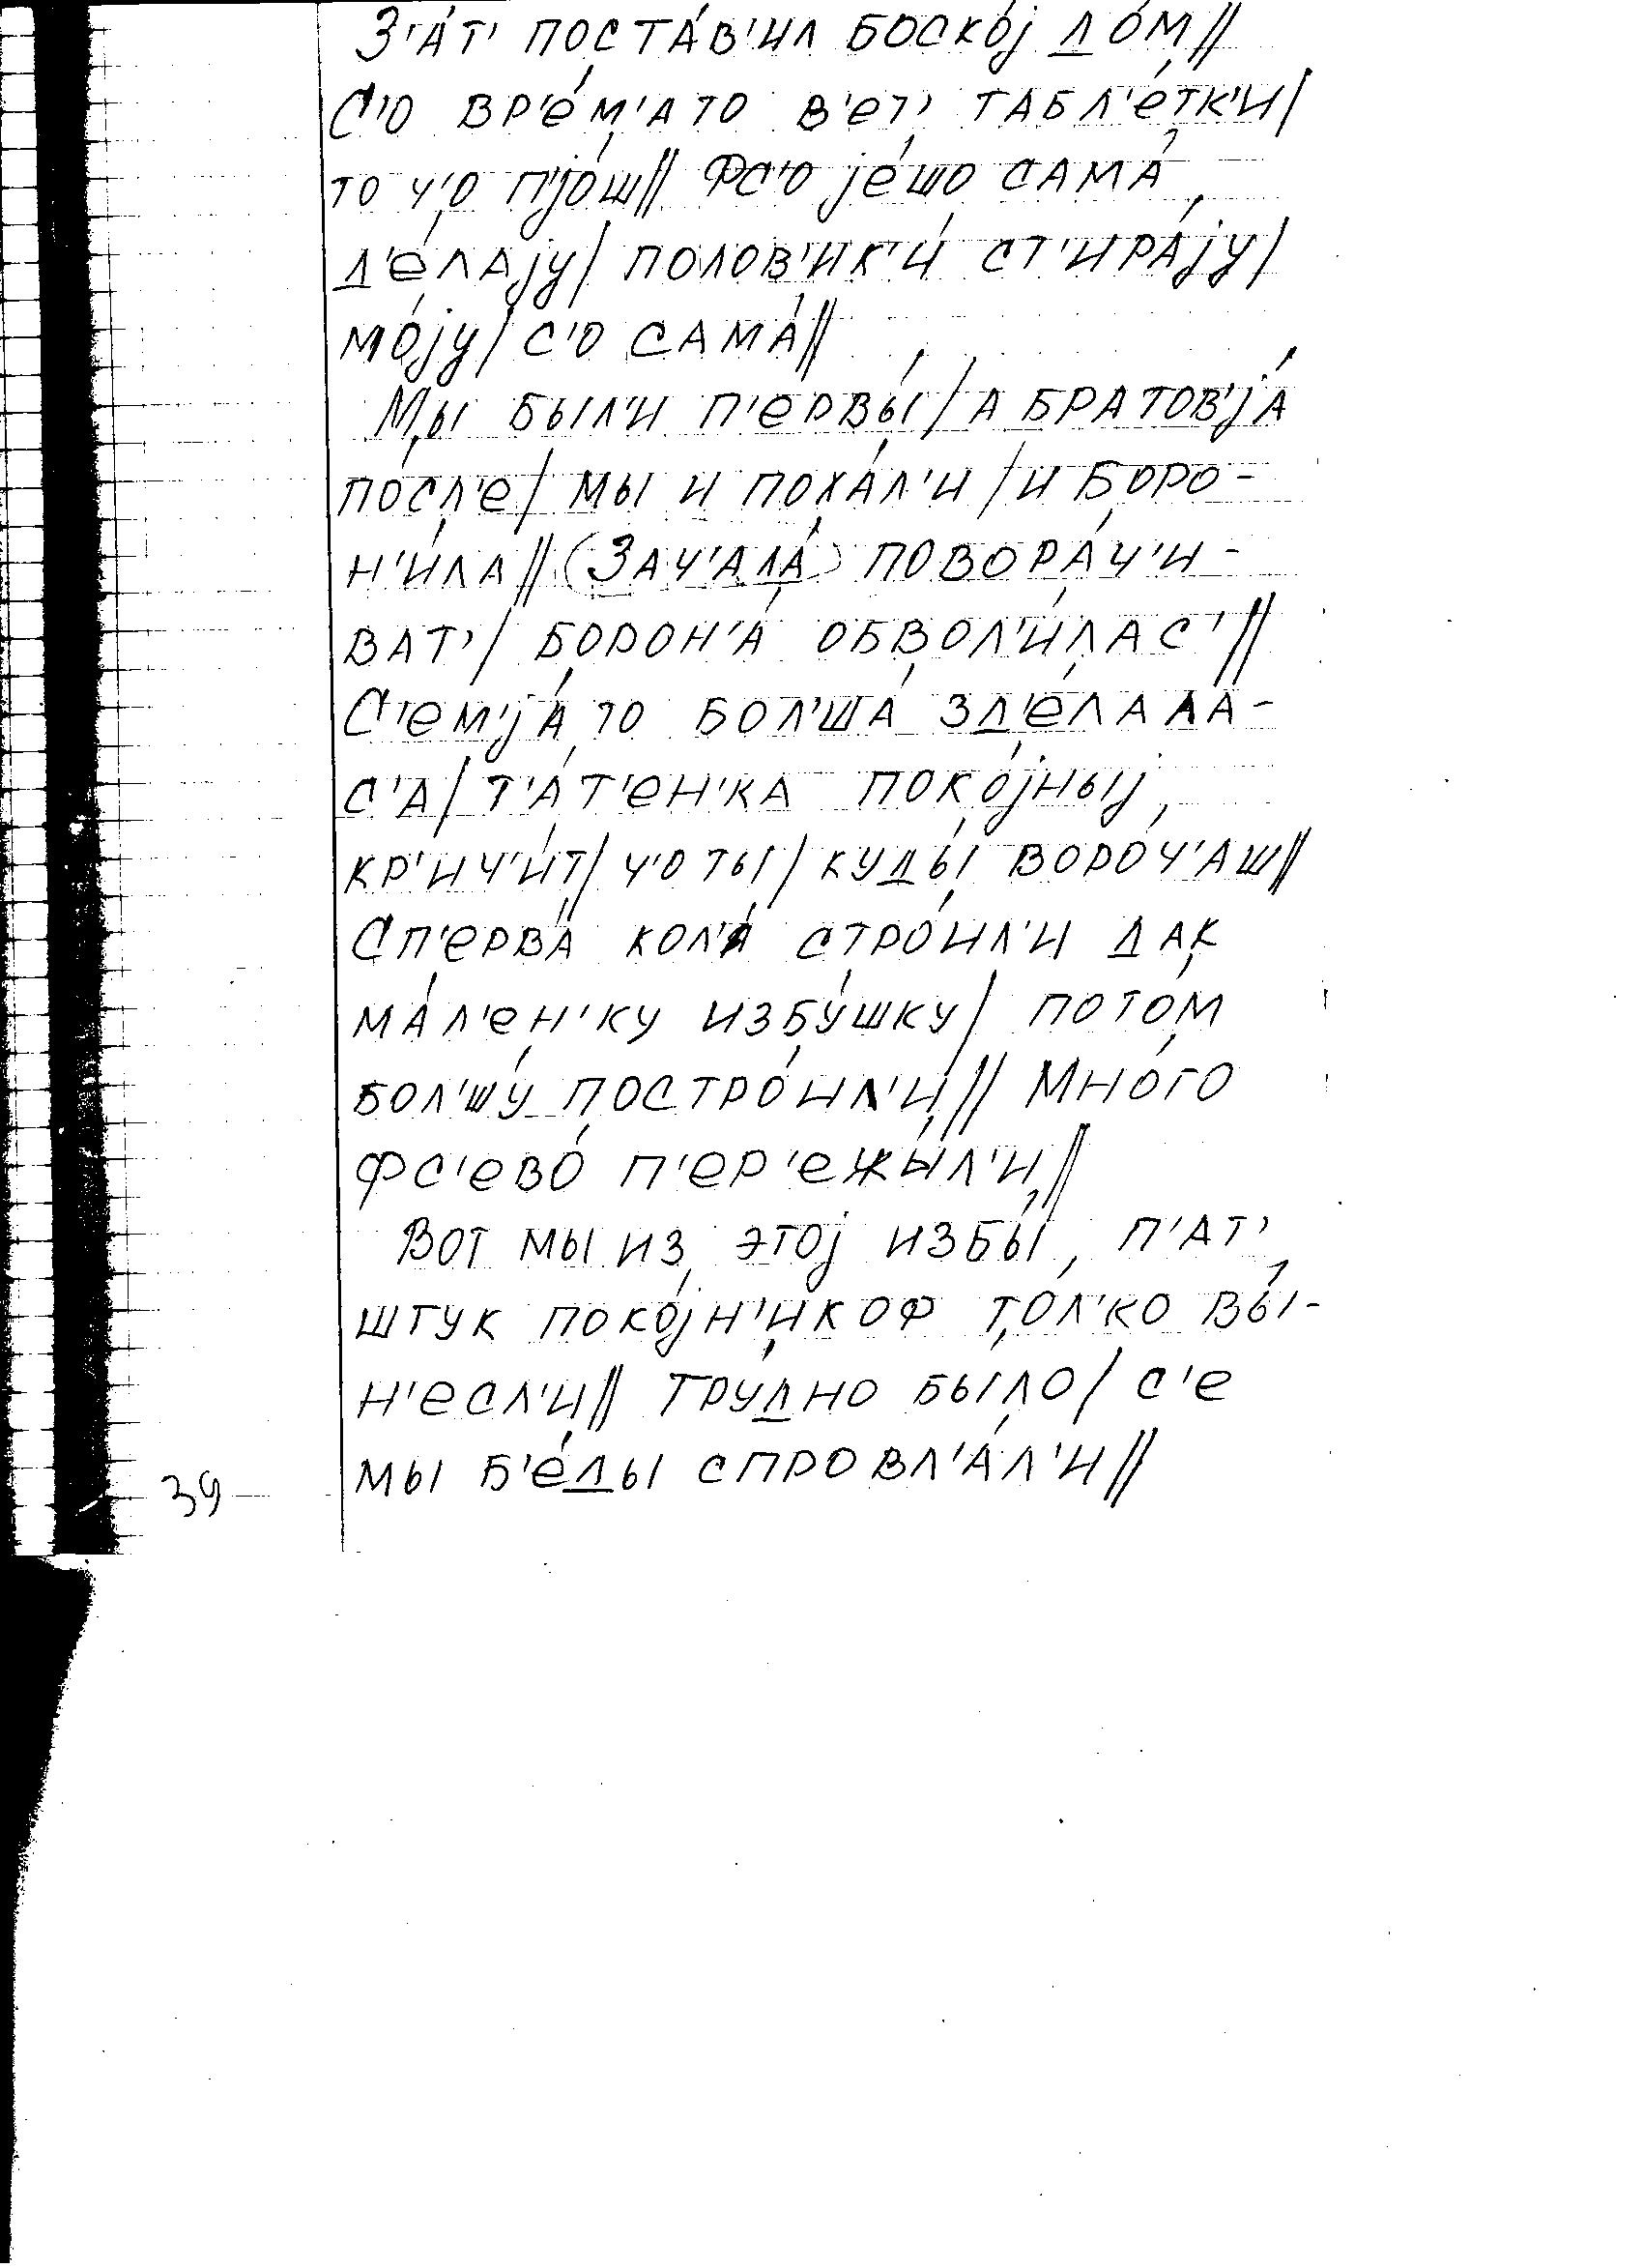 З'а́т' поста́в'ил боско́ј до́м//
С'о вр'е́м'ато в'ет' табл'е́тк'и/
то ч'о п'јо́ш// Фс'о је́шо сама́
д'е́лају/ полов'ик'и́ ст'ира́ју/
мо́ју/ с'о сама́//
Мы был'и п'ервы́/ а братов'ја́
по́сл'е/ мы и поха́л'и/ и боро-
н'и́ла// (Зач'ала́) повора́ч'и-
ват'/ борон'а́ обвол'и́лас'//
С'ем'ја́то бол'ша́ зд'е́лала-
с'а/ т'а́т'ен'ка поко́јныј
кр'ич'и́т/ ч'о ты/ куды́ воро́ч'аш//
Сп'ерва́ кол'а́ стро́ил'и дак
ма́л'ен'ку избу́шку/ пото́м
бол'шу́ постро́ил'и// Мно́го
фс'ево́ п'ер'ежы́л'и//
Вот мы из этој избы́ п'ат'
штук поко́јн'икоф то́л'ко вы́-
н'есл'и// Трудно было/ с'е
мы б'е́ды спровл'а́л'и//
39